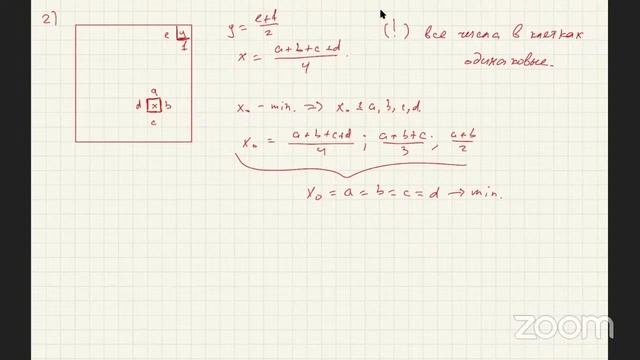 2)
e y
1
a
d x b
c
y = \frac{e+f}{2}
x = \frac{a+b+c+d}{4}.
(!) все числа в клетках
одинаковые.
x₀ - min. => x₀ ≤ a, b, c, d
x₀ = \frac{a+b+c+d}{4} ; \frac{a+b+c}{3} ; \frac{a+b}{2}
x₀ = a = b = c = d → min.
zoom